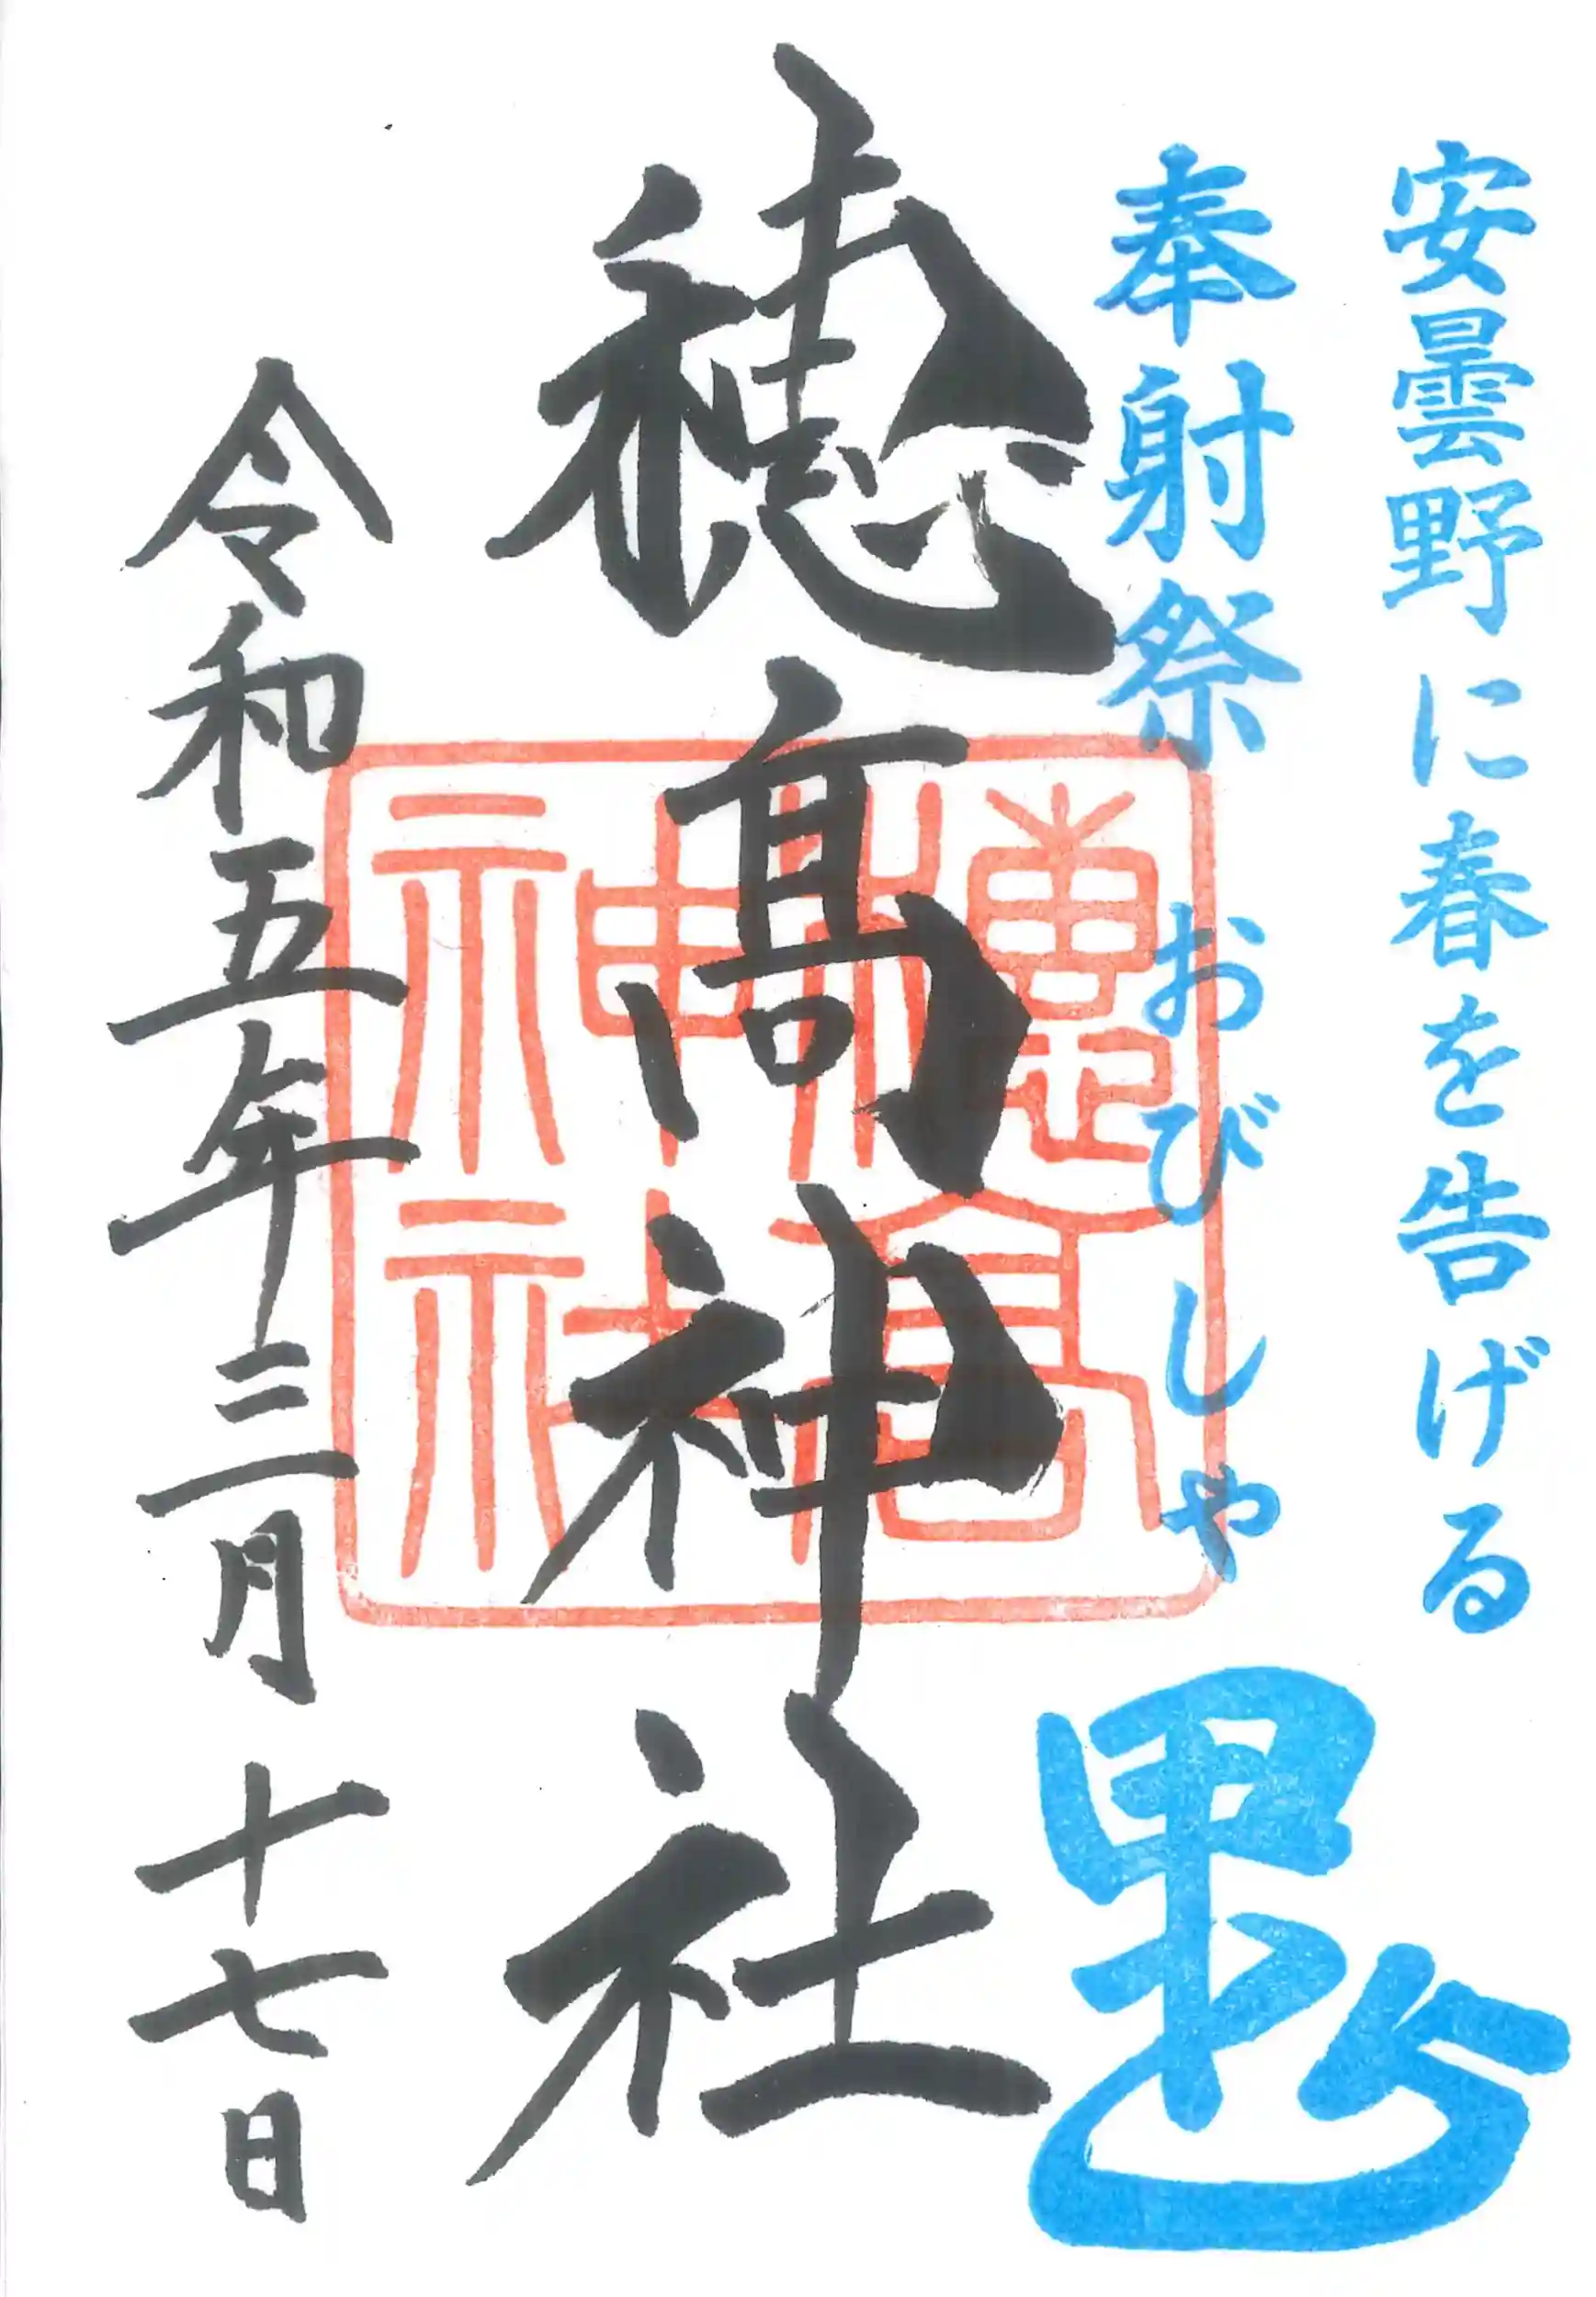 安曇野に春を告げる
奉射祭 おびしゃ
穂髙神社
穂高神社
令和五年三月十七日